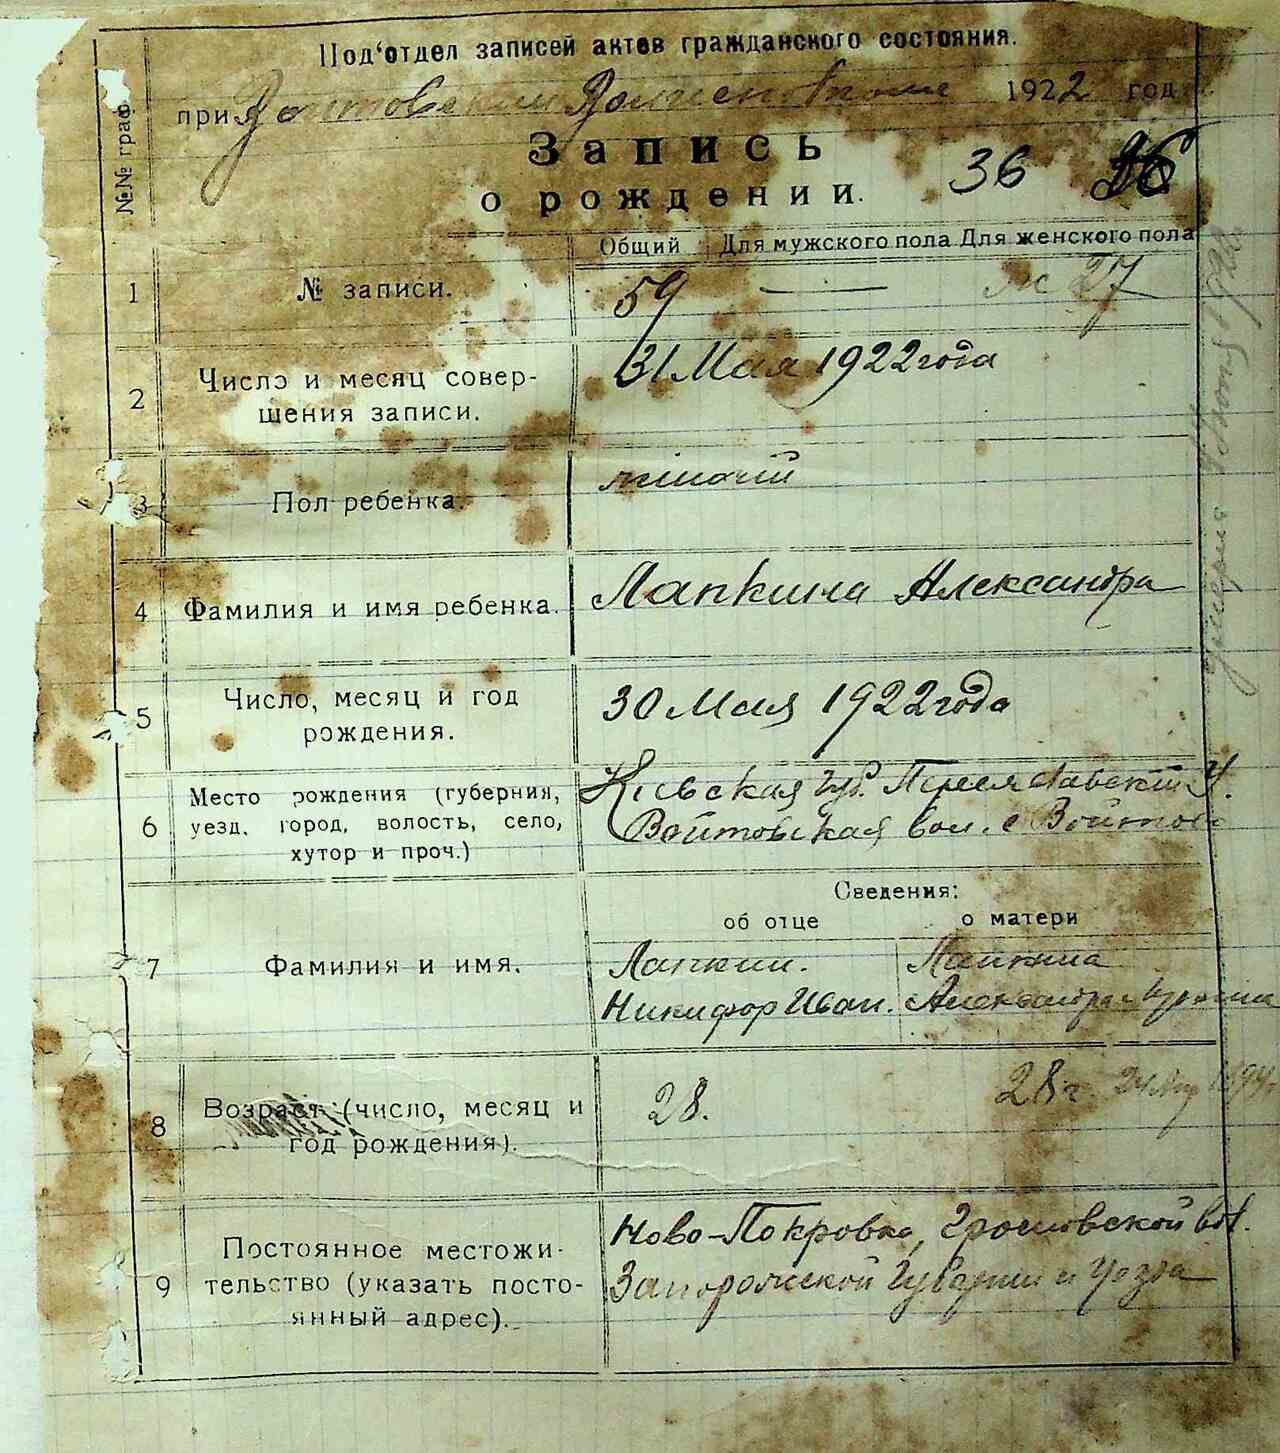 Под‘отдел записей актов гражданского состояния.
при Войтовском Волисполкоме 1922 год
№№ граф
Запись
о рождении. 36 26
Общий Для мужского пола Для женского пола
1 № записи. 59 — ж 27
2 Число и месяц совер-
шения записи. 31 Мая 1922 года
3 Пол ребенка. жіночій
4 Фамилия и имя ребенка. Лапкина Александра
5 Число, месяц и год
рождения. 30 Мая 1922 года
6 Место рождения (губерния,
уезд, город, волость, село,
хутор и проч.)
Киевская губ. Переяславский У.
Войтовская вол. с Войтово
Сведения:
об отце о матери
7 Фамилия и имя.
Лапкин. Лапкина
Никифор Иван. Александра
8 Возраст (число, месяц и
год рождения).
28. 28 г. 24
9 Постоянное местожи-
тельство (указать посто-
янный адрес).
Ново-Покровка, вол.
Запорожской Губернии и Уезда
Умерла 1922